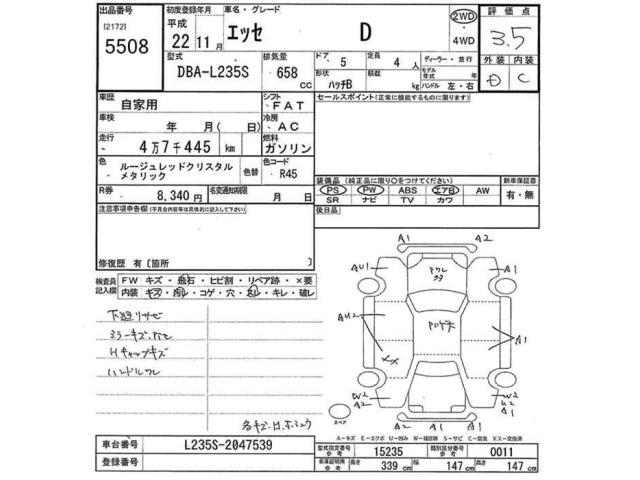 出品番号
[21721]
5508
初度登録年月
平成
22年11月
車名・グレード
エッセ
D
2WD
4WD
評価点
3.5
外装 内装
D C
型式
DBA-L235S
排気量
658
CC
ドア 5
形状
ハッチB
定員 4 人
積載
kg
ディーラー・並行
モデル年式 年
ハンドル 左・右
車歴
自家用
シフト
FAT
セールスポイント(正常に機能するものに限ります)
車検
年 月( 日)
冷房
AC
走行
4万7千445 km
燃料
ガソリン
色
ルージュレッドクリスタル
メタリック
色替
色コード
R45
装備品(純正品に限り○をつけてください)
PS PW ABS エアB AW
SR ナビ TV カワ
新車保証書
有・無
R券
8,340 円
名変通知期限
月 日
後日品
注意事項申告欄(不具合内容等は具体的に記入して下さい)
修復歴 有 [箇所 ]
検査員
記入欄
FW キズ・飛石・ヒビ割・リペア跡・×要
内装 キズ・汚レ・コゲ・穴・スレ・キレ・破レ
下廻リサビ
ミラーキズ
Hキャップキズ
ハンドルスレ
A1 A2
AU1 A1
AU2 A1
XX
W2
A2
W2
A2
A2 A1 A1
スペア
A-キズ E-エクボ U-凹み W-補修跡 S-サビ C-腐食 XX-交換済
車台番号
L235S-2047539
登録番号
型式指定番号
参考
15235
類別区分番号
参考
0011
車庫証明用
参考
長さ 339 cm
幅 147 cm
高さ 147 cm